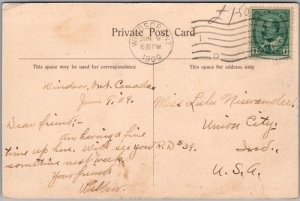 £1.50
Private Post Card
WINDSOR, ONT.
JUN 9
6:30 PM
1909
This space may be used for correspondence
This space for address only
Windsor, Ont. Canada,
June 9, '09.
Dear friend;-
Am having a fine
time up here. Will see you
sometime next week.
Your friend,
Miss Lulu Niswander,
Union City,
R.D.#39. Ind.
U.S.A.